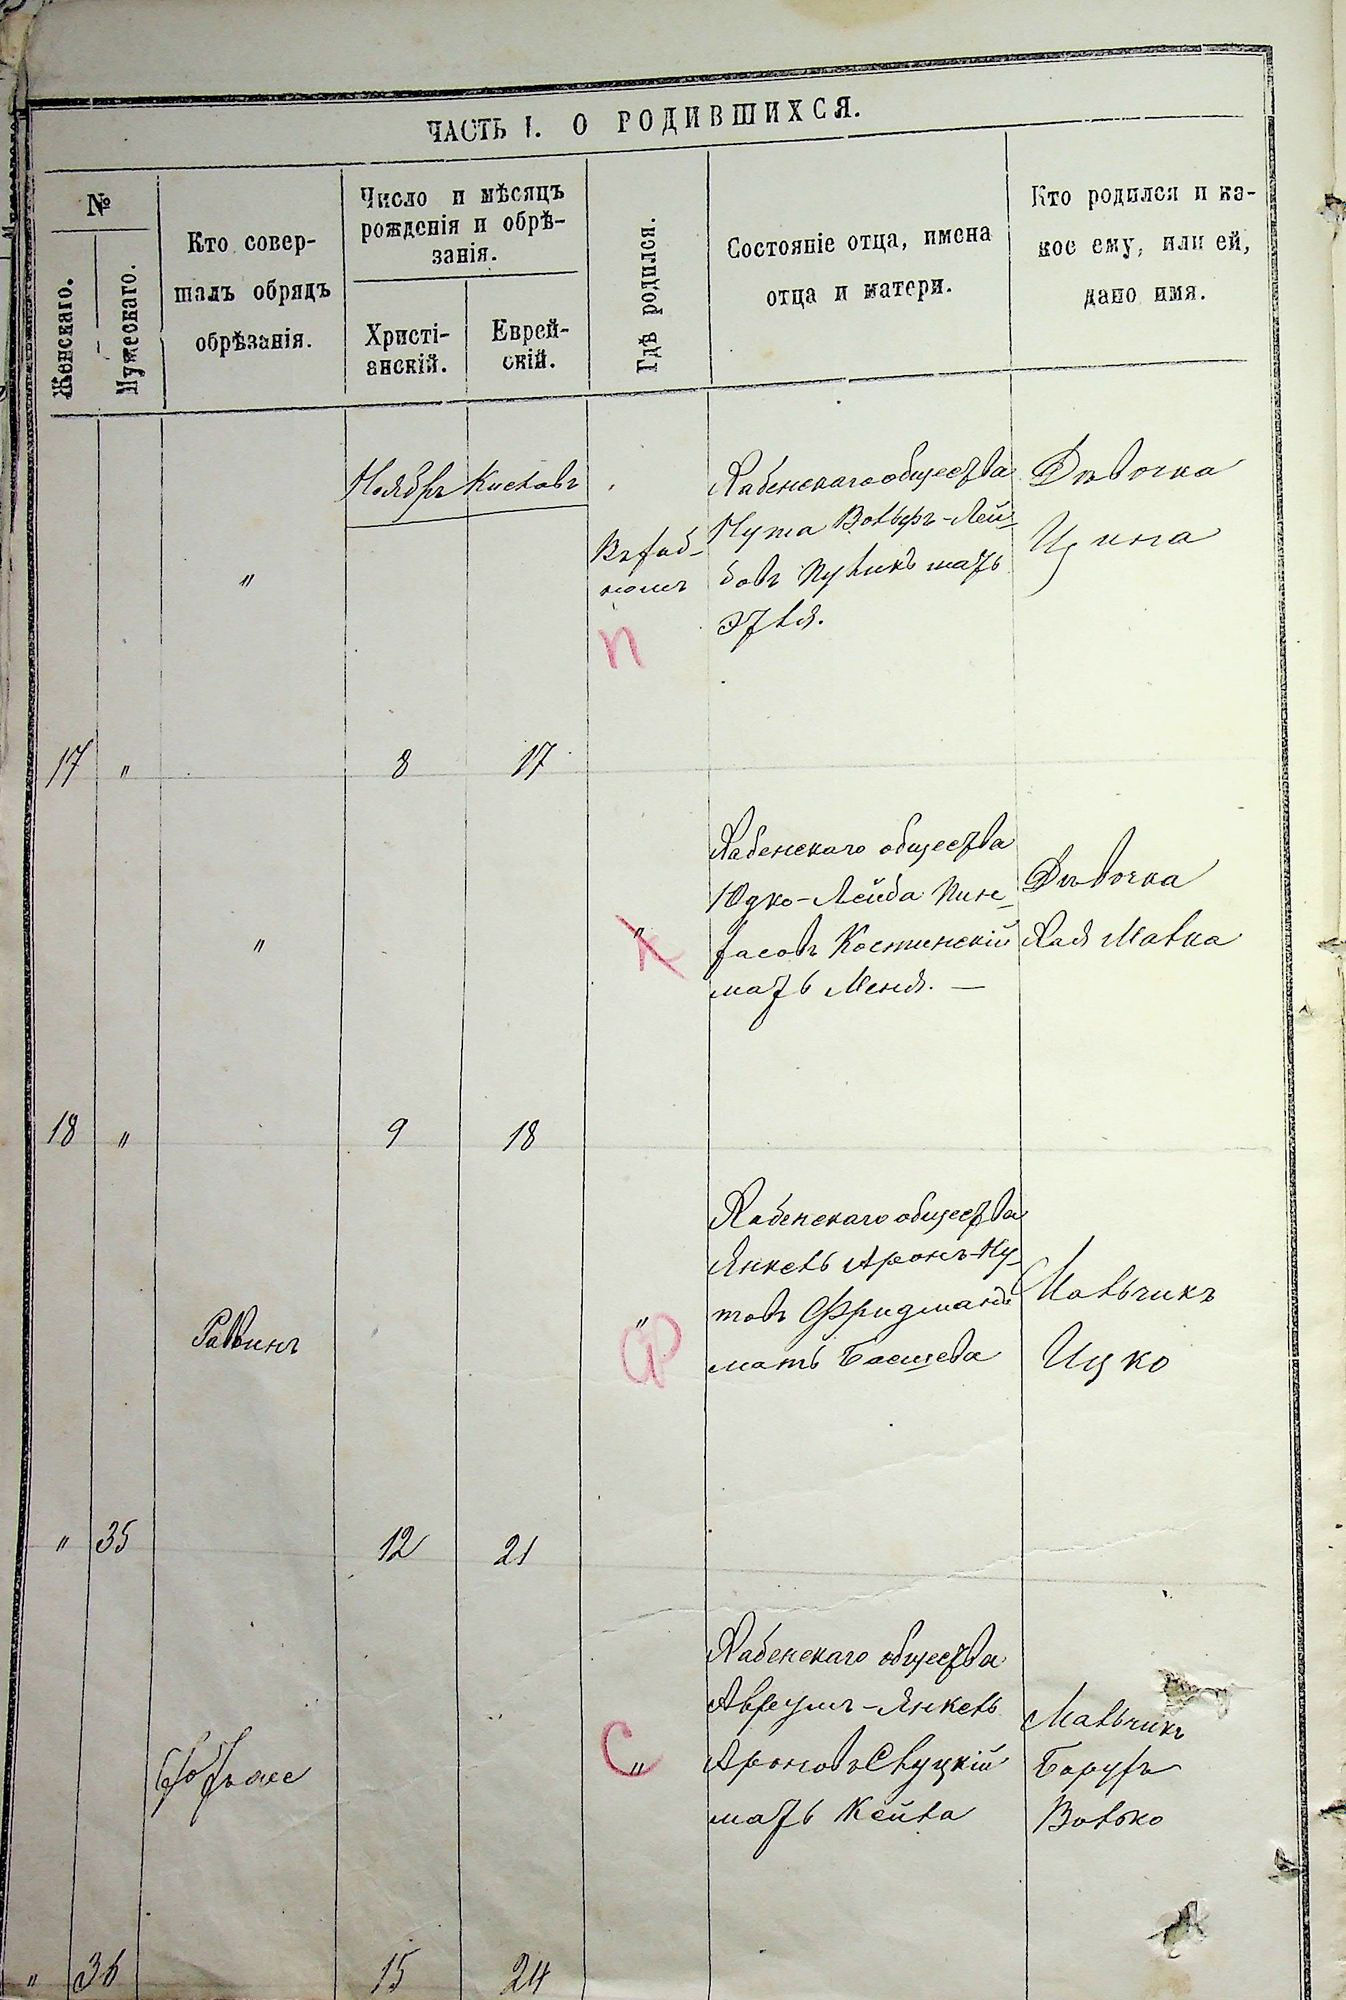 ЧАСТЬ I. О РОДИВШИХСЯ.
№
Женскаго.
Мужескаго.
Кто совер-
шалъ обрядъ
обрѣзанія.
Число и мѣсяцъ
рожденія и обрѣ-
занія.
Христі-
анскій.
Еврей-
скій.
Гдѣ родился.
Состояніе отца, имена
отца и матери.
Кто родился и ка-
кое ему, или ей,
дано имя.
Ноябрь Кислевъ
"
Въ Хаб-
номъ
П
Хабенскаго общества
Нута Вольфъ-Лей-
бовъ Пуликъ мать
Этля.
Дѣвочка
Ципа
17 " 8 17
"
"
К
Хабенскаго общества
Юдко-Лейба Пин-
хасовъ Костинскій
мать Меня. —
Дѣвочка
Хая Малка
18 " 9 18
Раввинъ
"
Ф
Хабенскаго общества
Янкель Аронъ-Ну-
товъ Фридманъ
мать Басшева
Мальчикъ
Ицко
" 35 12 21
"
С
Хабенскаго общества
Аврумъ-Янкель
Ароновъ Слуцкій
мать Кейла
Мальчикъ
Борухъ
Волько
" 36 15 24